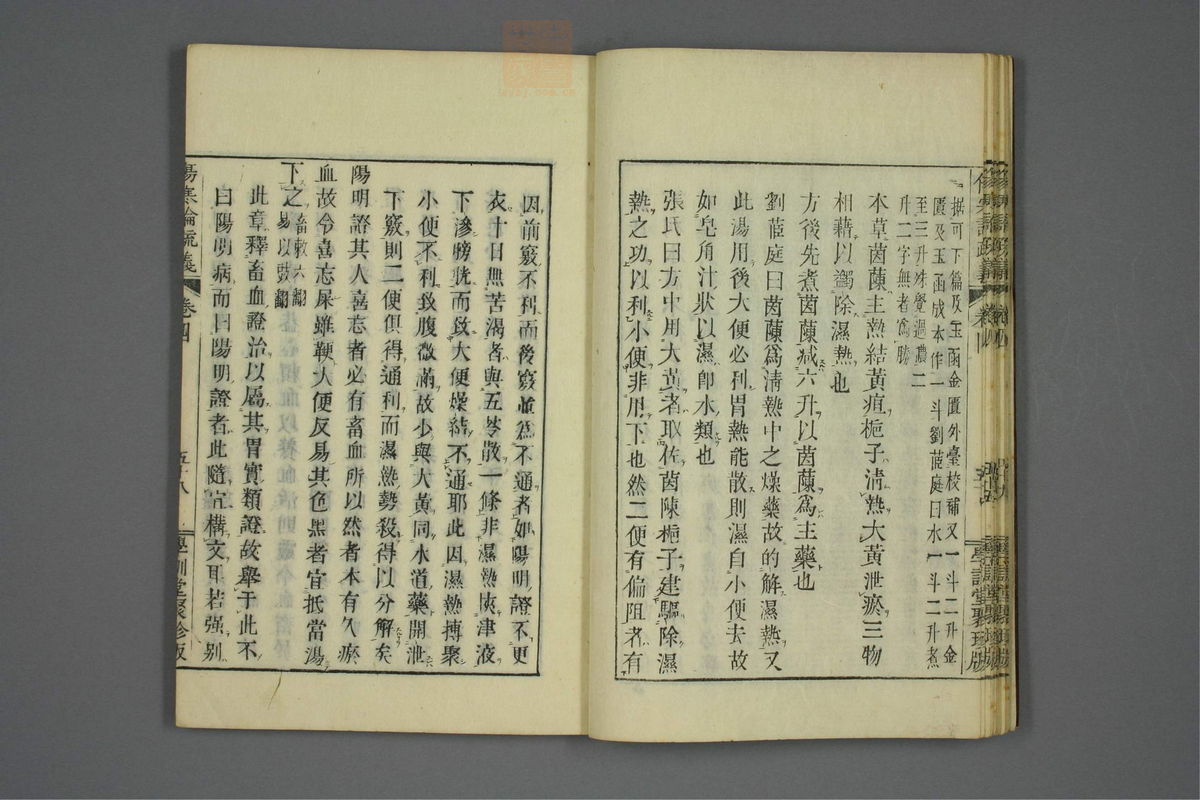 據可下篇及玉函金匱外臺校補又一斗二升金
匱及玉函成本作一斗劉茝庭曰水一斗二升煮
至三升殊覺過濃二
升二字無者爲勝
本草茵蔯主熱結黃疸梔子淸熱大黃泄瘀三物
相藉以蠲除濕熱也
方後先煮茵蔯減六升以茵蔯爲主藥也
劉茝庭曰茵蔯爲淸熱中之燥藥故的解濕熱又
此湯用後大便必利胃熱能散則濕自小便去故
如皂角汁狀以濕卽水類也
張氏曰方中用大黃者取佐茵陳梔子建驅除濕
熱之功以利小便非用下也然二便有偏阻者有
因前竅不利而後竅並爲不通者如陽明證不更
衣十日無苦渴者與五苓散一條非濕熱挾津液
下滲膀胱而致大便燥結不通耶此因濕熱摶聚
小便不利致腹微滿故少與大黃同水道藥開泄
下竅則二便俱得通利而濕熱勢殺得以分解矣
陽明證其人喜忘者必有畜血所以然者本有久瘀
血故令喜忘屎雖鞕大便反易其色黑者宜抵當湯
下之畜敕六翻
易以豉翻
此章釋畜血證治以屬其胃實類證故擧于此不
曰陽明病而曰陽明證者此隨宜構文耳若强別
傷寒論疏義 卷四 五十八 學訓堂聚珍版